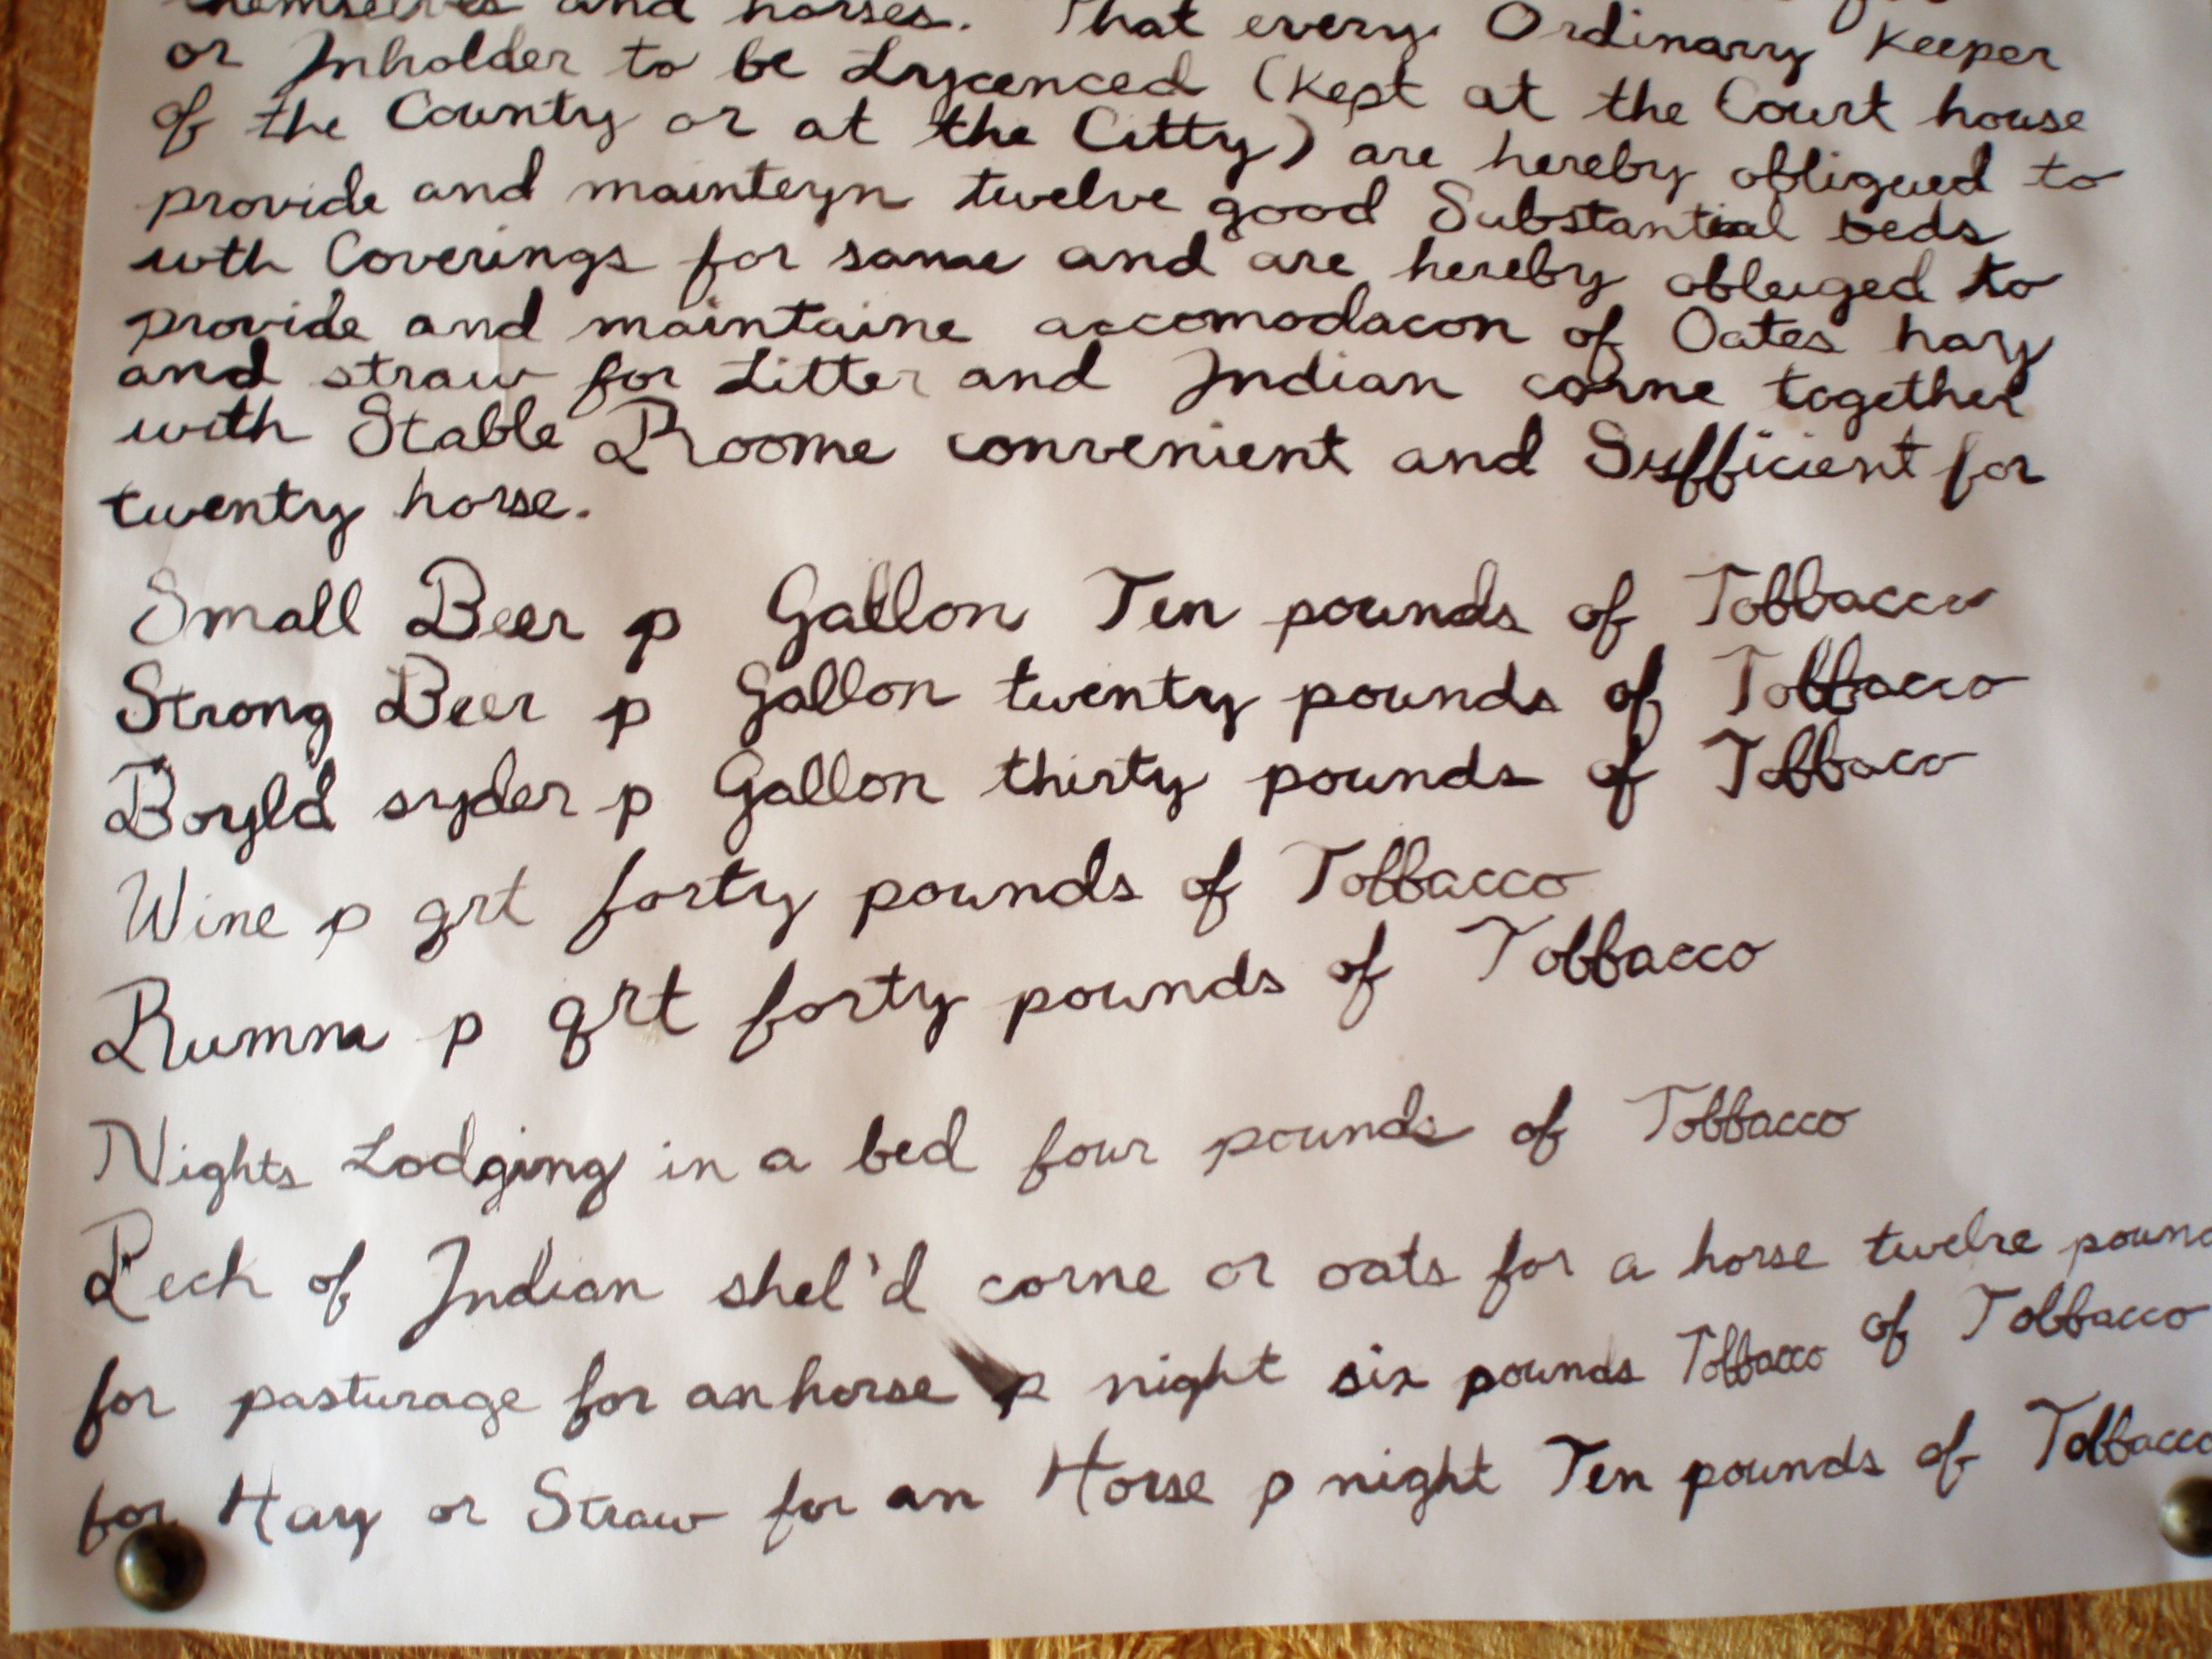 themselves and horses. That every Ordinary Keeper
or Inholder to be Lycenced (Kept at the Court house
of the County or at the Citty) are hereby obligued to
provide and mainteyn twelve good Substantial beds
wth Coverings for same and are hereby obleiged to
provide and maintaine accomodacon of Oates hay
and straw for Litter and Indian corne together
with Stable Roome convenient and Sufficient for
twenty horse.
Small Beer p Gallon Ten pounds of Tobbacco
Strong Beer p Gallon twenty pounds of Tobbacco
Boyld syder p Gallon thirty pounds of Tobbaco
Wine p qrt forty pounds of Tobbacco
Rumm p qrt forty pounds of Tobbacco
Nights Lodging in a bed four pounds of Tobbacco
Peck of Indian shel'd corne or oats for a horse twelve pound
of Tobbacco
for pasturage for an horse p night six pounds Tobbacco
for Hay or Straw for an Horse p night Ten pounds of Tobbacco